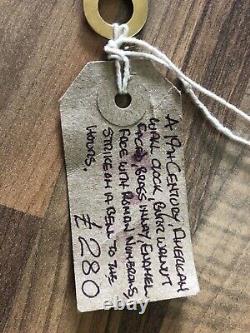 A 19th CENTURY, AMERICAN
WALL CLOCK, BURR WALNUT
FACED, BRASS INLAY, ENAMEL
FACE WITH ROMAN NUMERALS,
STRIKE ON A BELL TO THE
HOURS.
£280